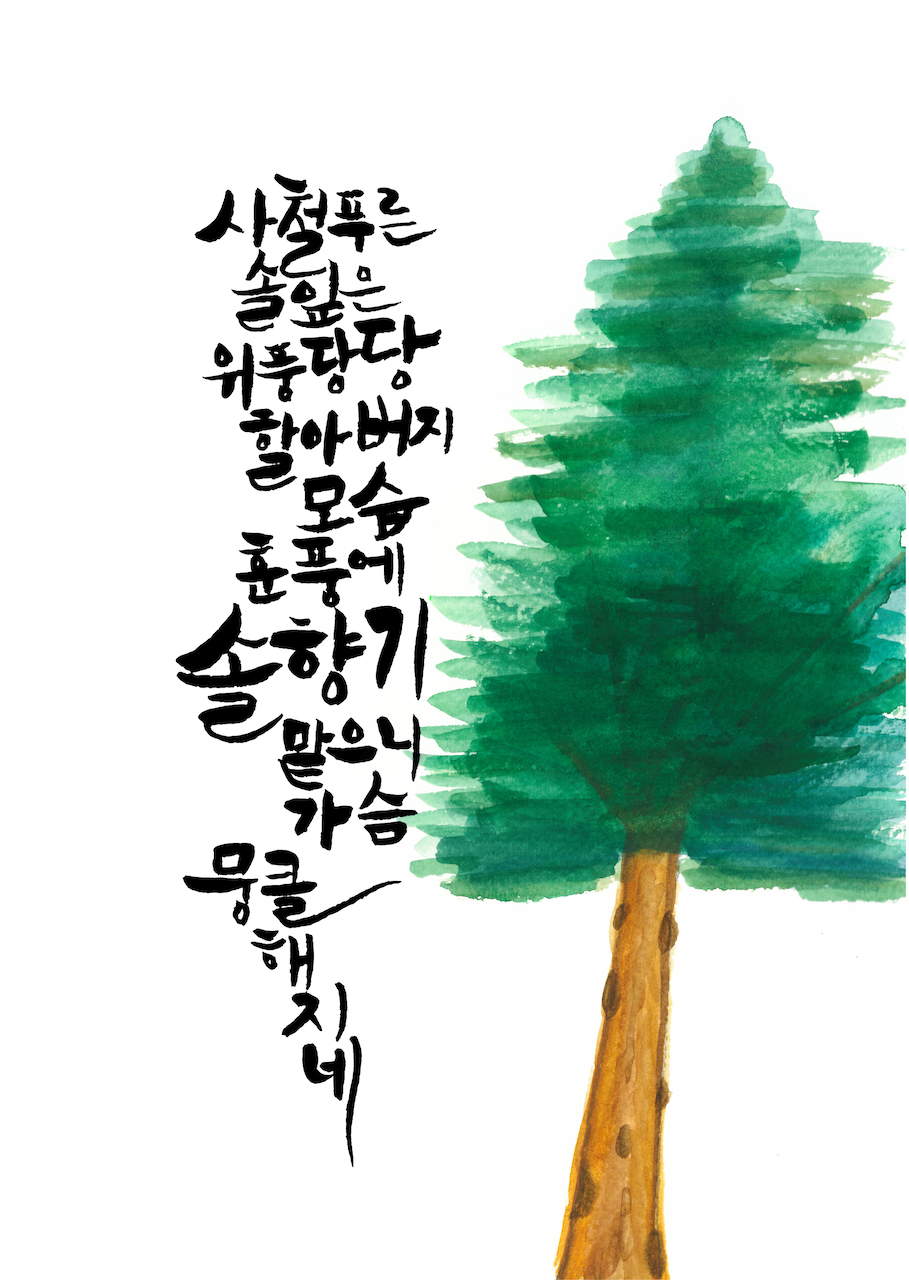 사철푸른
솔잎은
위풍당당
할아버지
모습
훈풍에
솔향기
맡으니
가슴
뭉클
해
지
네